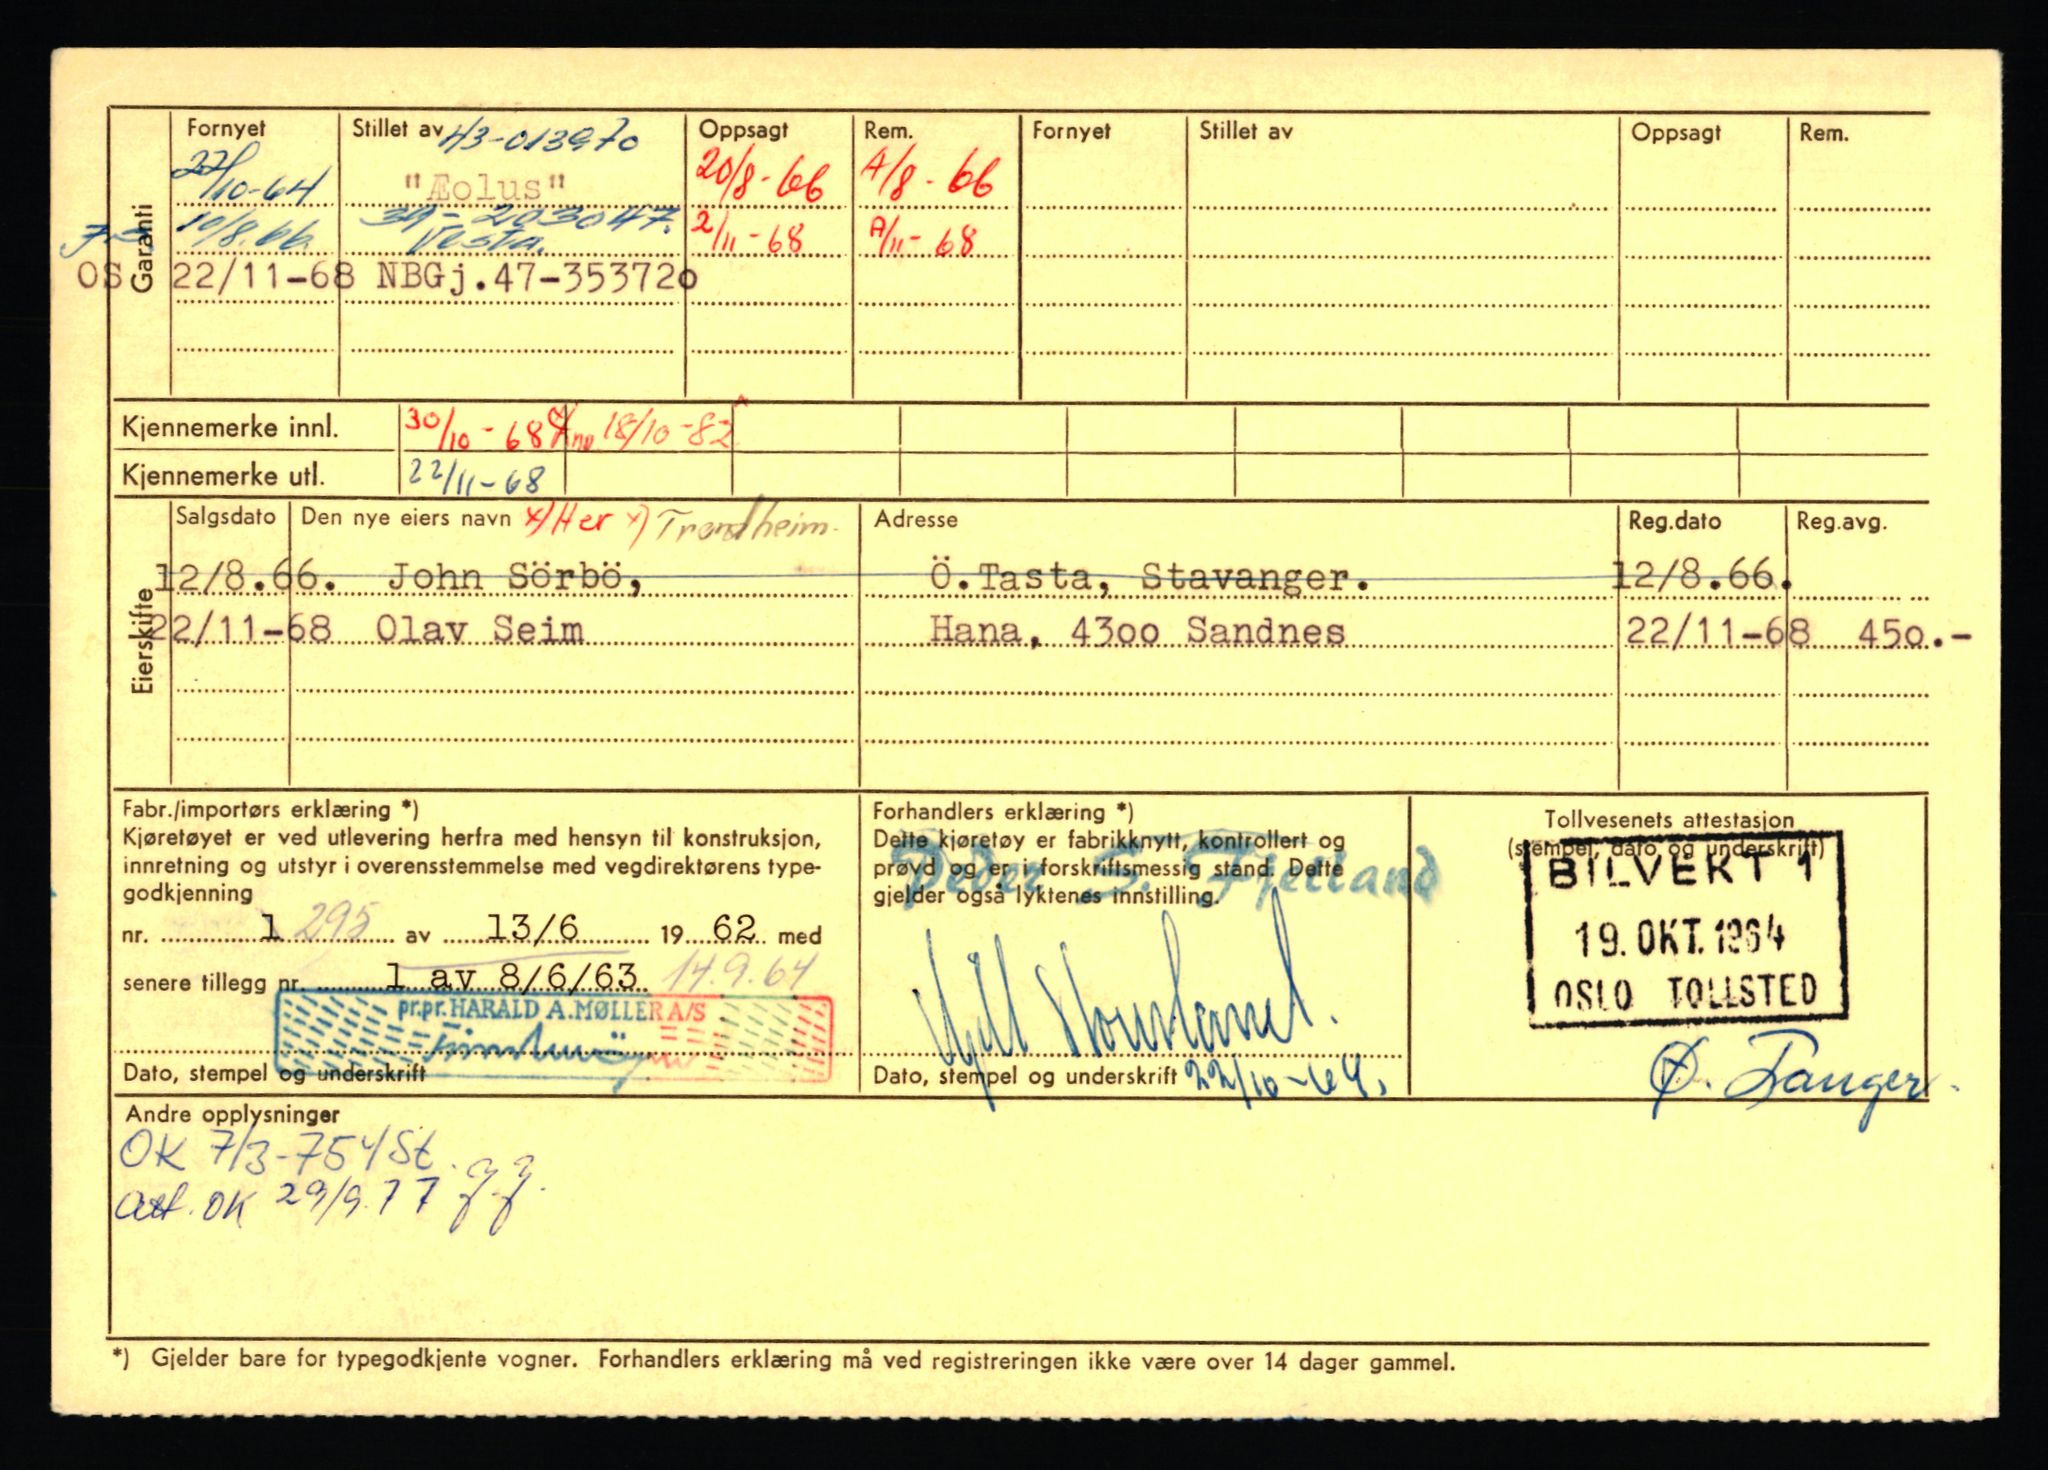 Garanti
Fornyet Stillet av 43-013970 Oppsagt Rem. Fornyet Stillet av Oppsagt Rem.
27/10-64 "Æolus" 20/8-66 A/8-66
10/8.66. 39-203047. Vesta. 2/11-68 A/11-68
OS 22/11-68 NBGj.47-35372o
Kjennemerke innl. 30/10-68 18/10-82
Kjennemerke utl. 22/11-68
Eierskifte
Salgsdato Den nye eiers navn x)Her x) Trondheim. Adresse Reg.dato Reg.avg.
12/8.66. John Sörbö, Ö.Tasta, Stavanger. 12/8.66.
22/11-68 Olav Seim Hana, 43oo Sandnes 22/11-68 45o.-
Fabr./importørs erklæring *)
Kjøretøyet er ved utlevering herfra med hensyn til konstruksjon,
innretning og utstyr i overensstemmelse med vegdirektørens type-
godkjenning
nr. 1 295 av 13/6 19 62 med
senere tillegg nr. 1 av 8/6/63 14.9.64
pr.pr. HARALD A. MØLLER A/S
Dato, stempel og underskrift
Forhandlers erklæring *)
Dette kjøretøy er fabrikknytt, kontrollert og
prøvd og er i forskriftsmessig stand. Dette
gjelder også lyktenes innstilling.
Peder S. Fjelland
Dato, stempel og underskrift 22/10-64.
Tollvesenets attestasjon
(stempel, dato og underskrift)
BILVEKT 1
19. OKT. 1964
OSLO TOLLSTED
Ø. Tanger.
Andre opplysninger
OK 7/3-75 4 St.
att. OK 29/9.77 J.J.
*) Gjelder bare for typegodkjente vogner. Forhandlers erklæring må ved registreringen ikke være over 14 dager gammel.